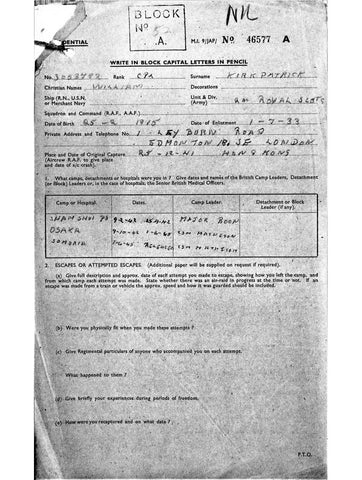 BLOCK
No 52
.A.
Nil
DENTIAL
M.I. 9/JAP/ No 46577 A
WRITE IN BLOCK CAPITAL LETTERS IN PENCIL
No. Rank Cpl Surname KIRKPATRICK
Christian Names WILLIAM Decorations
Ship (R.N., U.S.N. or Merchant Navy) Unit & Div. (Army) 2nd ROYAL SCOTS
Squadron and Command (R.A.F., A.A.F.)
Date of Birth 25-2-1915 Date of Enlistment 1-7-33
Private Address and Telephone No. 1. LEYBURN ROAD
EDMONTON N.18. LONDON
Place and Date of Original Capture 25-12-41 HONG KONG
(Aircrew R.A.F. to give place
and date of a/c crash).
1. What camps, detachments or hospitals were you in? Give dates and names of the British Camp Leaders, Detachment
(or Block) Leaders or, in the case of hospitals, the Senior British Medical Officers.
Camp or Hospital. Dates. Camp Leader. Detachment or Block Leader (if any).
SHAMSHUI PO MAJOR BOON
OSAKA CSM MATHESON
CSM MATHESON
2. ESCAPES OR ATTEMPTED ESCAPES. (Additional paper will be supplied on request if required).
(a) Give full description and approx. date of each attempt you made to escape, showing how you left the camp, and
from which camp each attempt was made. State whether there was an air-raid in progress at the time or not. If an
escape was made from a train or vehicle the approx. speed and how it was guarded should be included.
(b) Were you physically fit when you made these attempts?
(c) Give Regimental particulars of anyone who accompanied you on each attempt.
What happened to them?
(d) Give briefly your experiences during periods of freedom.
(e) How were you recaptured and on what date?
P.T.O.